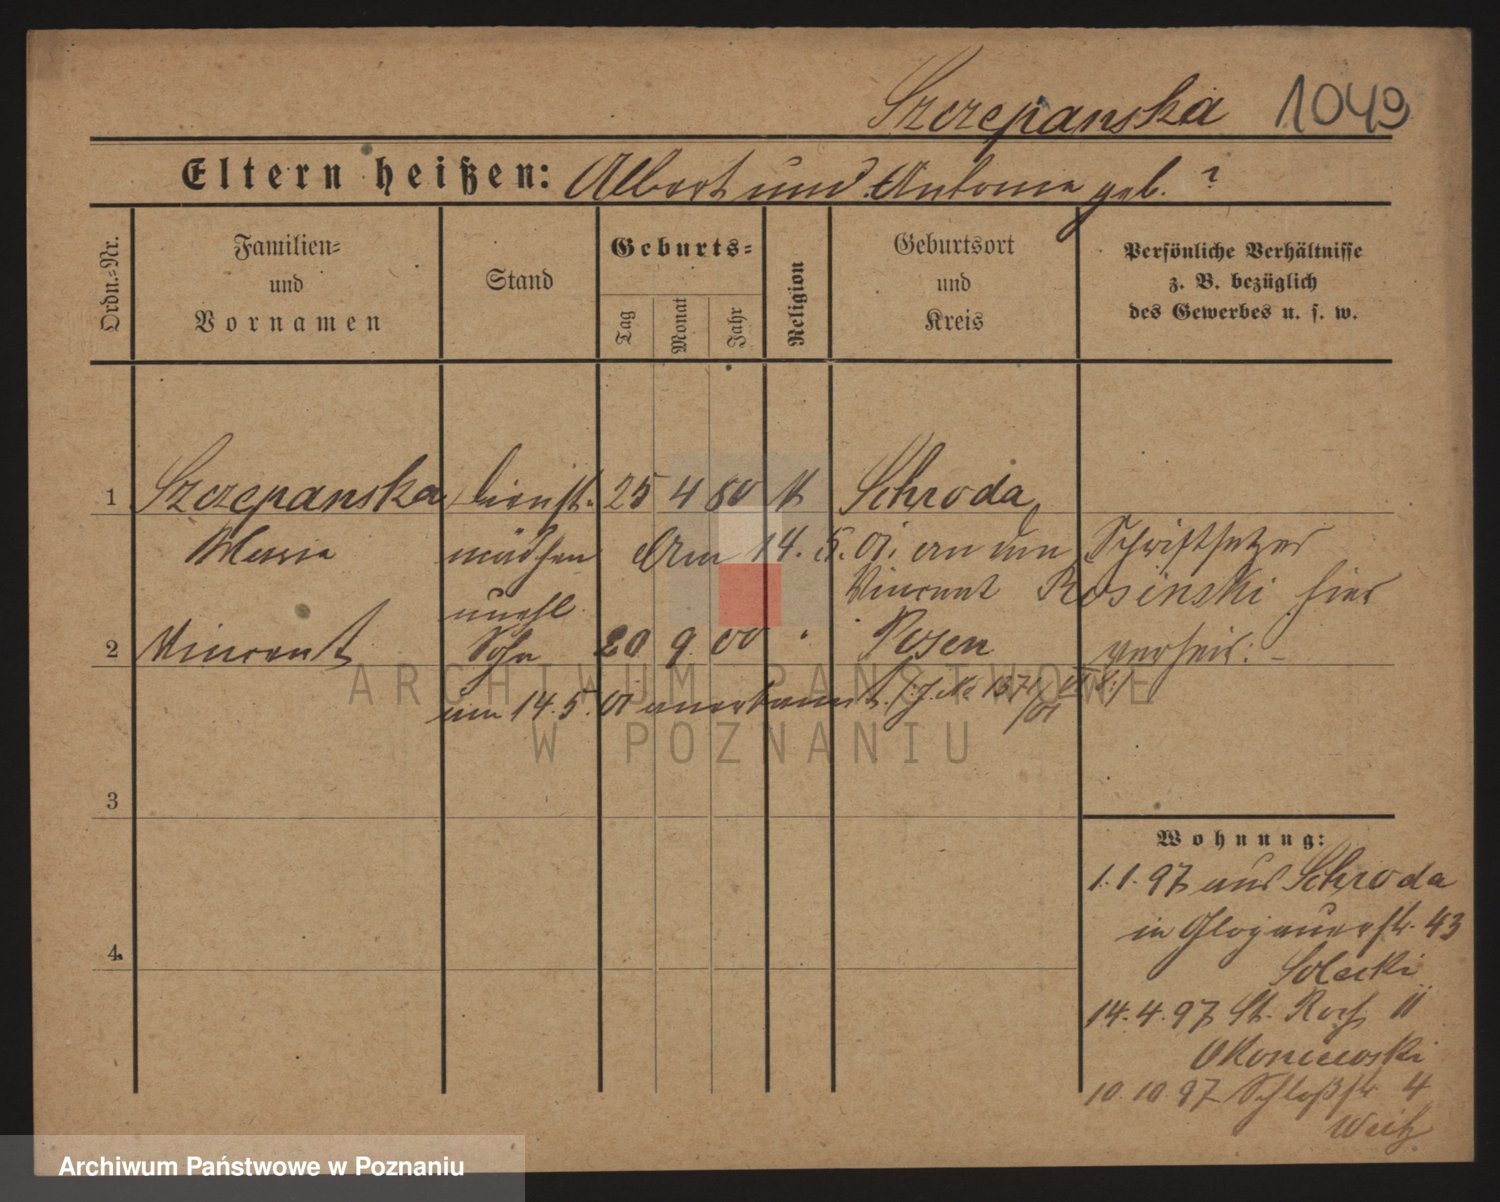 Szczepanska 1049
Eltern heißen: Albert und Antonie geb. ?
Ordn.=Nr.
Familien=
und
Vornamen
Stand
Geburts=
Tag Monat Jahr
Religion
Geburtsort
und
Kreis
Persönliche Verhältnisse
z. B. bezüglich
des Gewerbes u. s. w.
1 Szczepanska Dienst- 25 4 80 k Schroda
Maria mädchen Am 14. 5. 01. an den Schriftsetzer
Vincent Rosinski hier
unehl.
2 Vincent Sohn 20 9 00 " Posen verheir: -
am 14. 5. 01 anerkannt
3
4.
Wohnung:
1. 1. 97 aus Schroda
in Glogauerstr. 43
Solecki
14. 4. 97 St. Roch 11
Okoniewski
10. 10. 97 Schloßstr 4
Weitz
ARCHIWUM PAŃSTWOWE
W POZNANIU
Archiwum Państwowe w Poznaniu